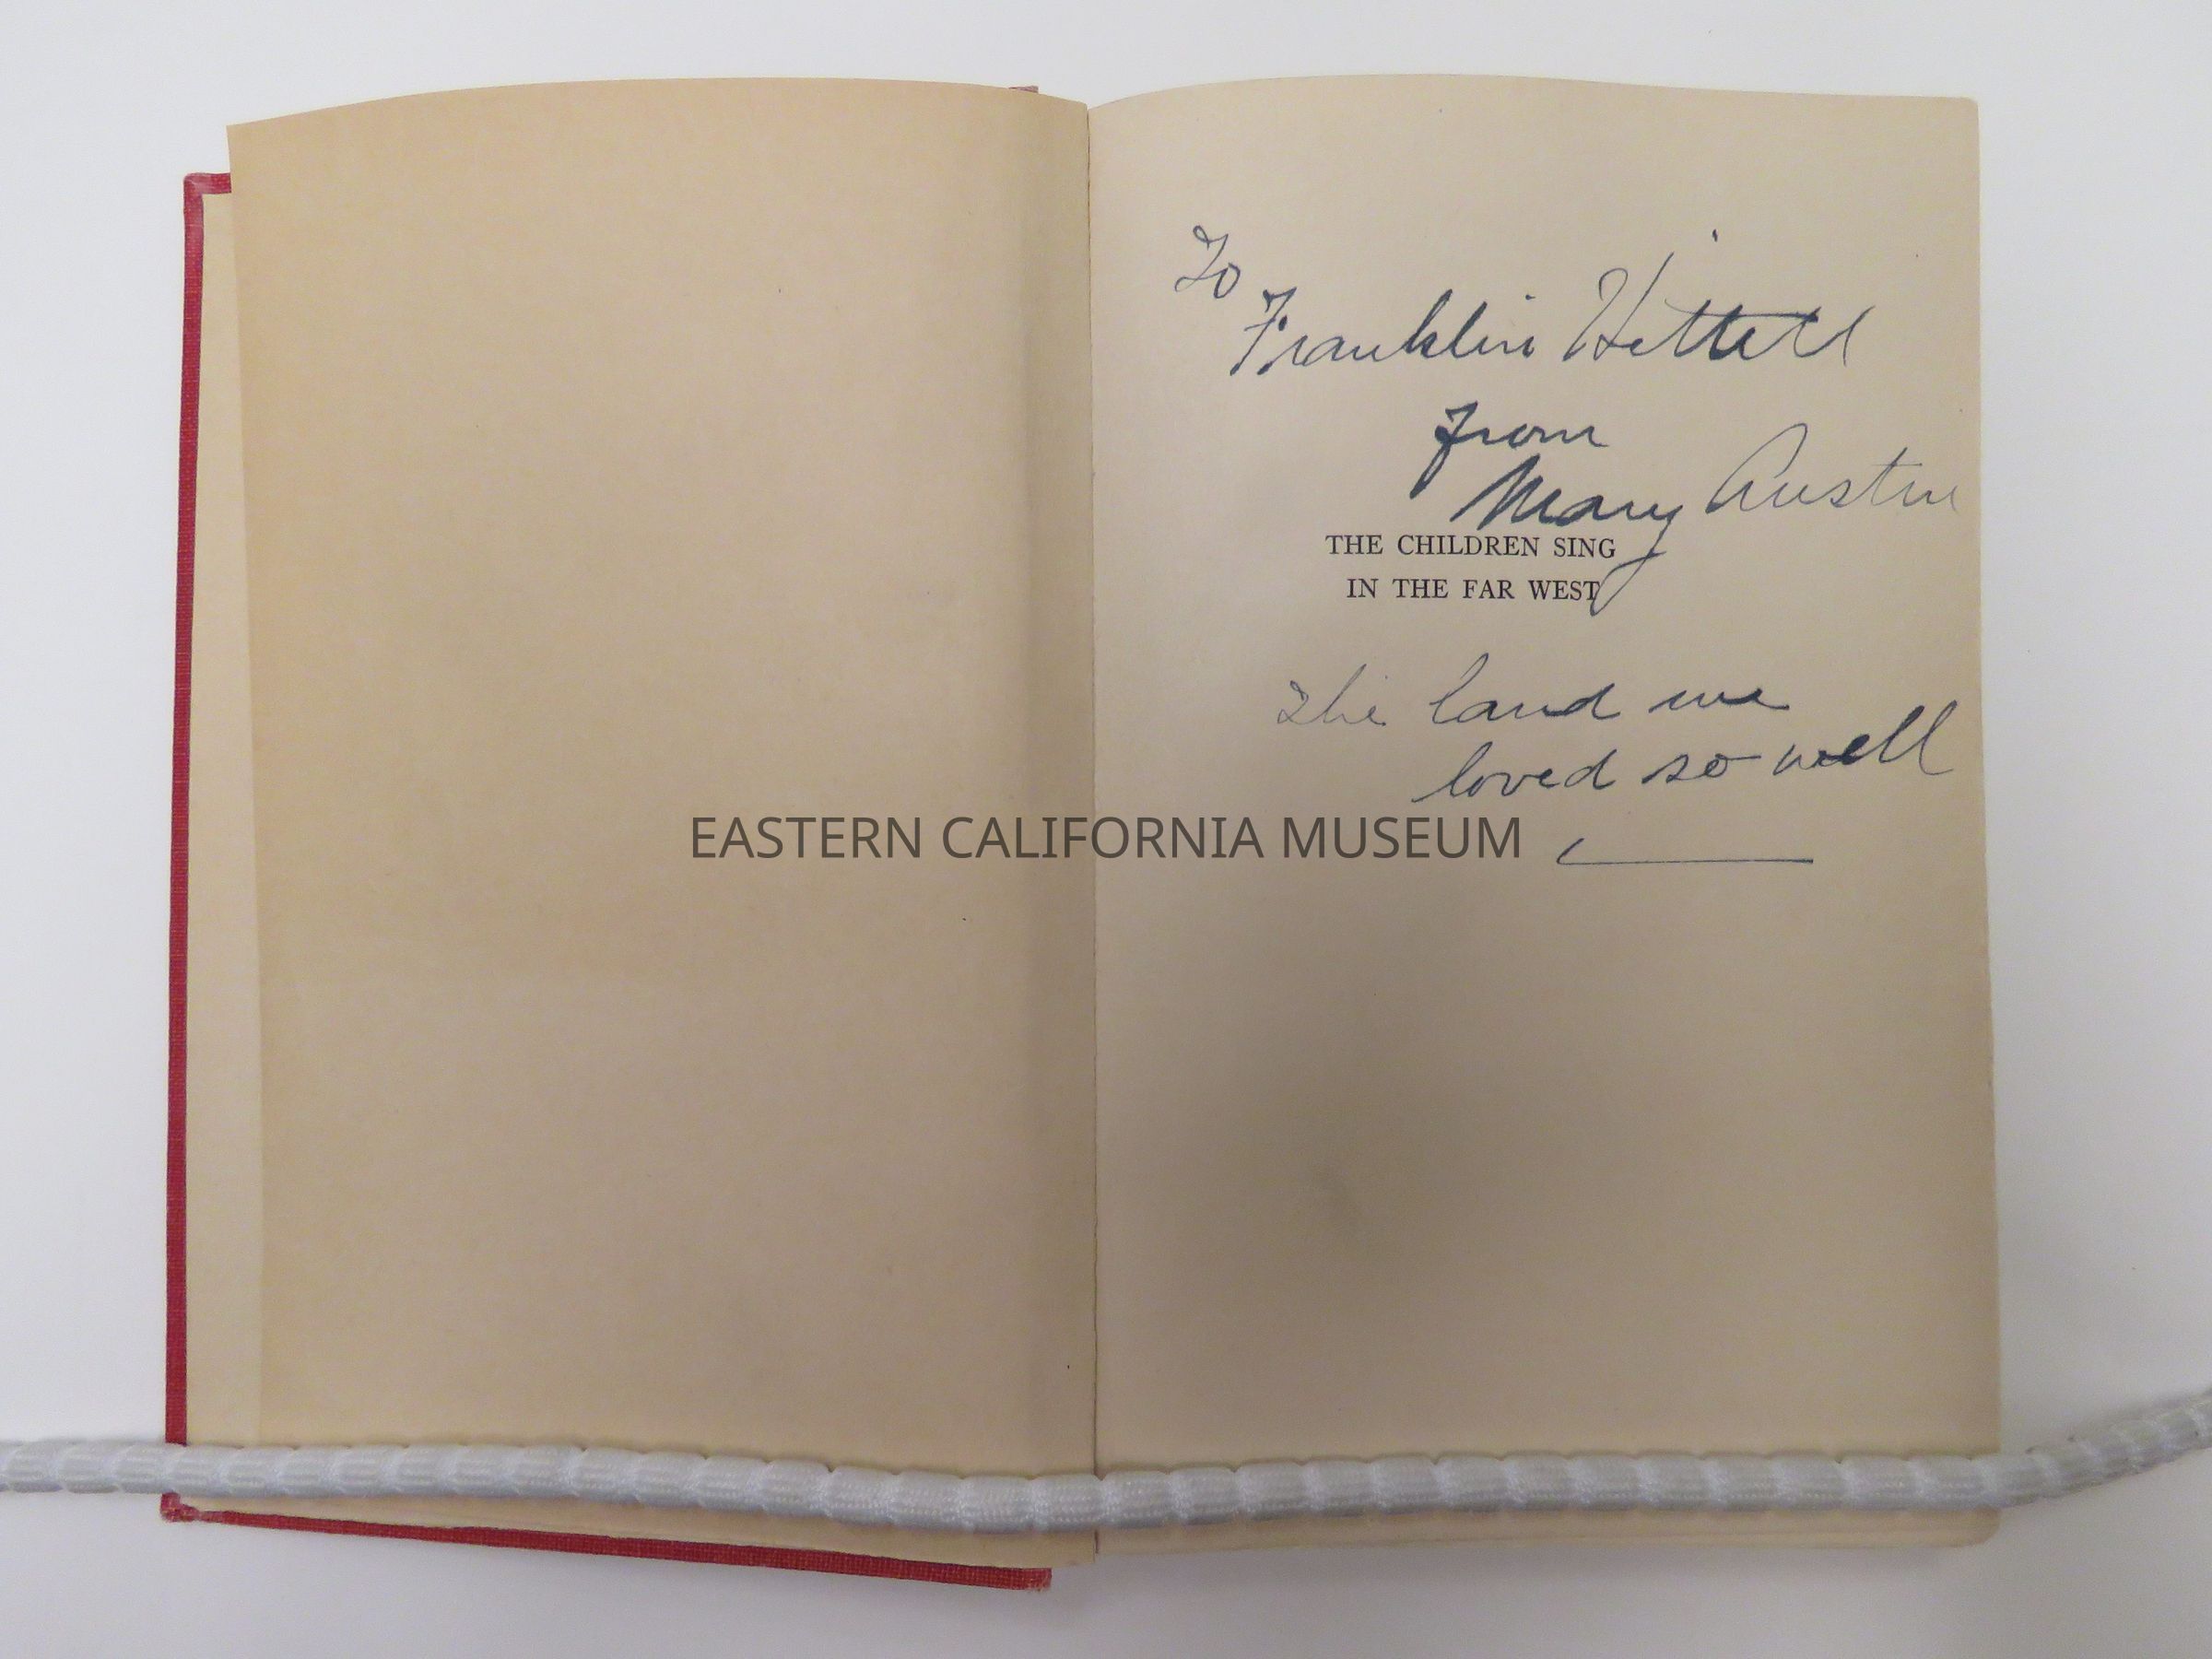 To
Franklin Hittell
from
Mary Austin
THE CHILDREN SING
IN THE FAR WEST
The land we
loved so well
EASTERN CALIFORNIA MUSEUM